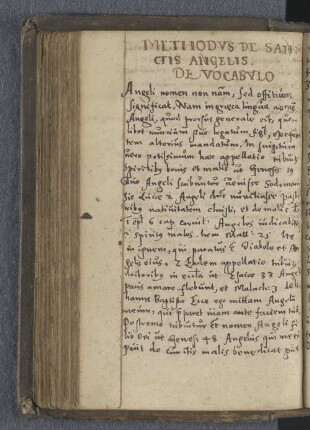 METHODVS DE SAN
CTIS ANGELIS.
DE VOCABULO
Angeli nomen non nãm, sed officium
significat, Nam in græca lingua nomē
Angeli, quod prorsus generale est, quem
libet nuncium siue legatum sigt,
tem alterius mandatum, In scriptura
uero potissimum haec appellatio tribuit
spiritibus bonis et malis ut Geneseos 19
duo Angeli scribuntur uenisse Sodomam
sic Lucæ 2 Angeli nunciasse pasto
ribus natiuitatem christi, et de malis
1 Cor 6 cap Angelos iudicabimus
i spiritus malos. Item Matt: 25 Ite
in ignem, qui paratus est Diabolo et An
gelis eius, 2 Eadem appellatio tribuit
doctoribus in ecclia ut Esaiæ 33 Angeli
pacis amare flebunt, et Malach: 3 de Io
hanne Baptista Ecce ego mittam Angelū
meum, qui p̱paret uiam ante faciem tuā
Postremo tribuitur et nomen Angeli fi
lio Dei ut Genesi 48 Angelus qui me eri
puit de cunctis malis benedicat pue